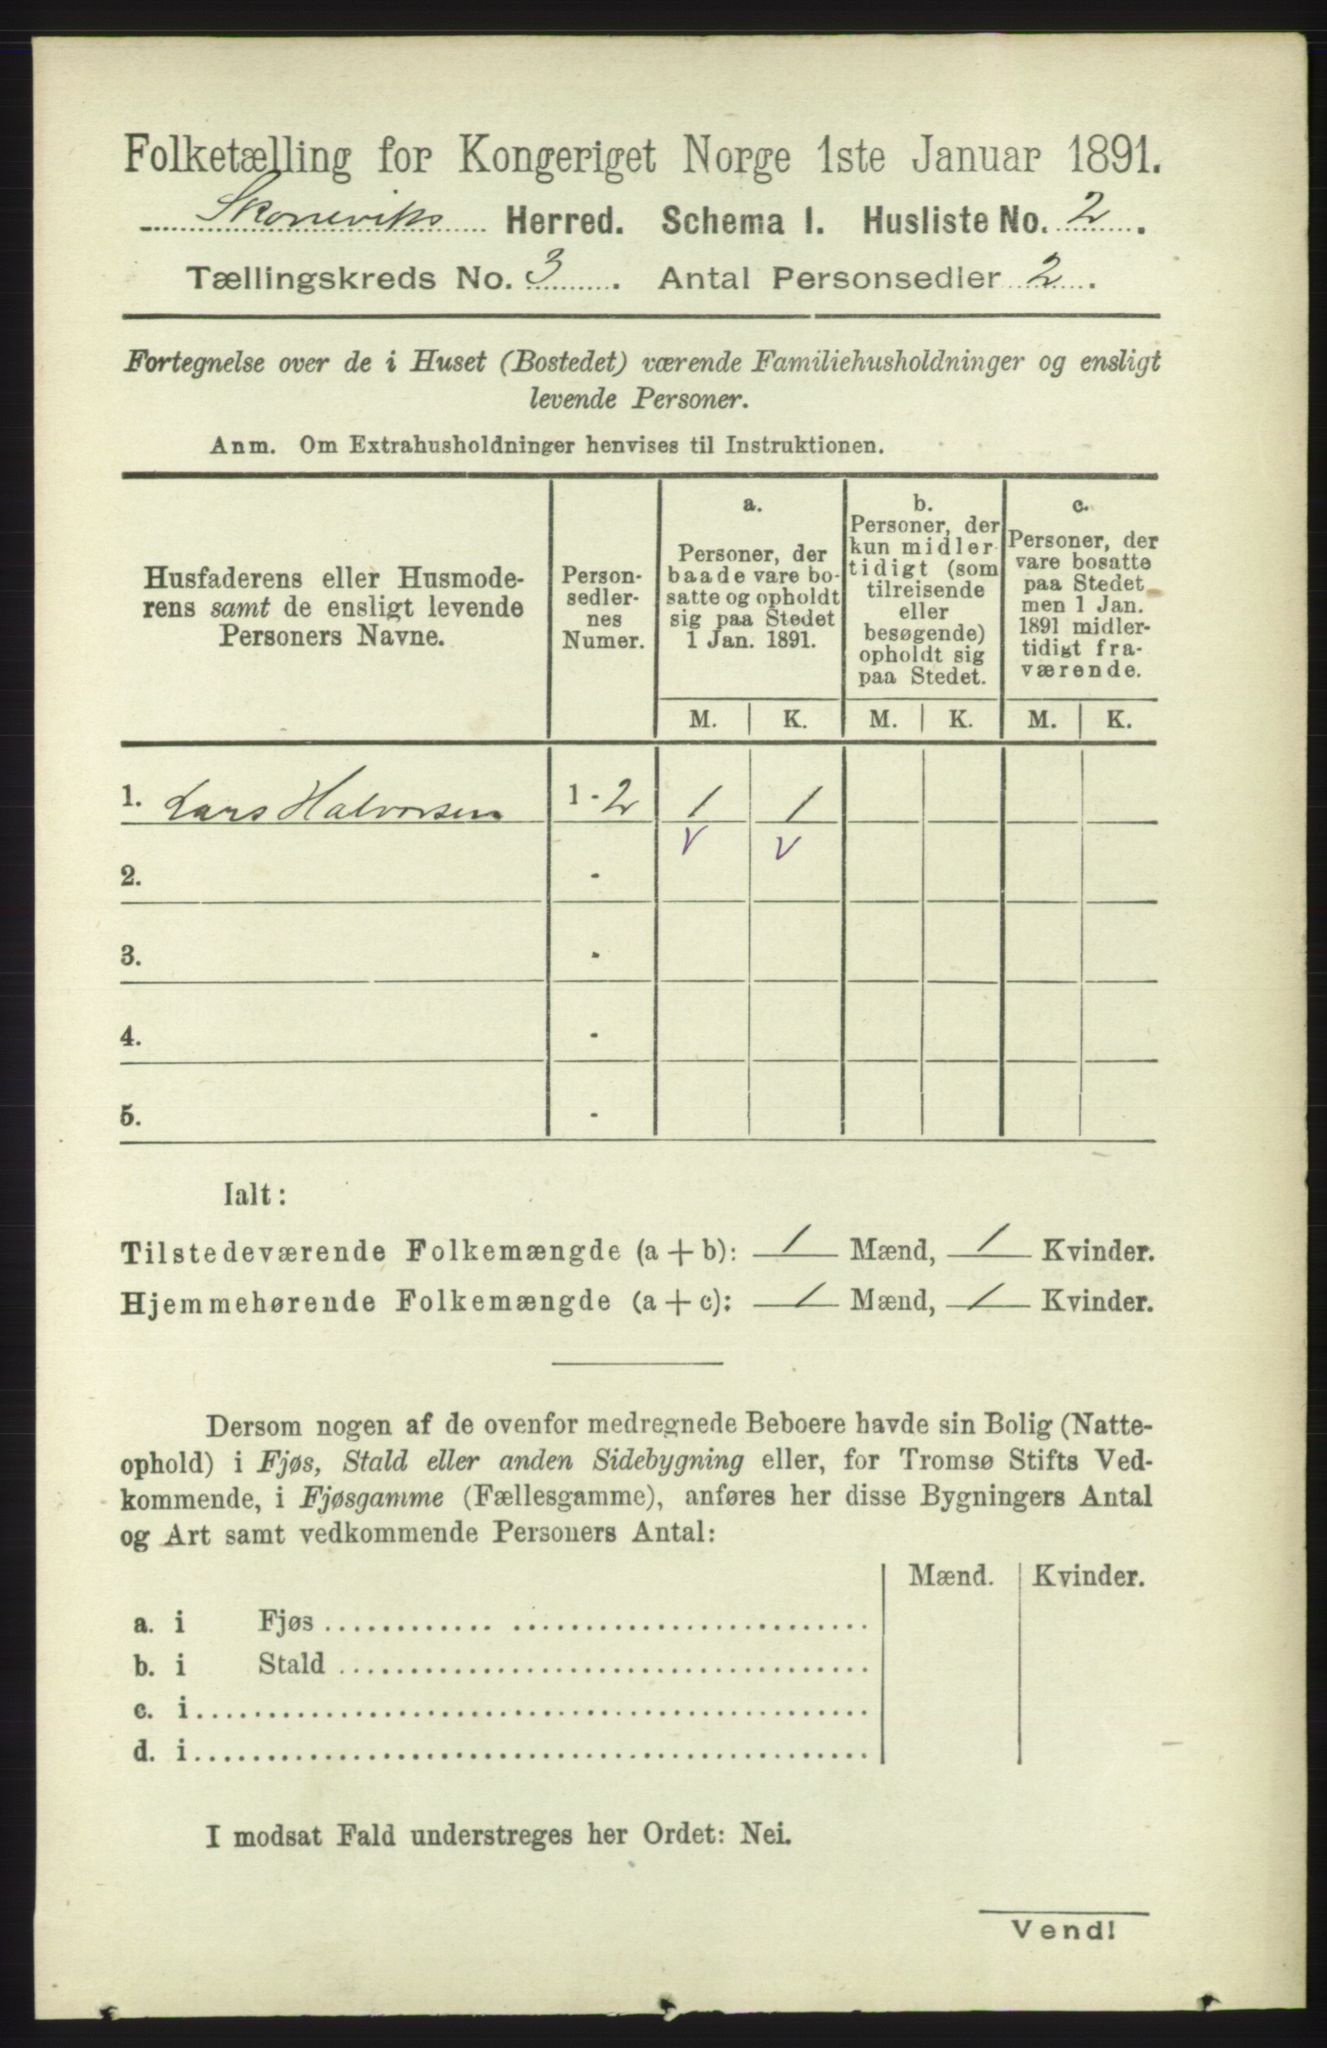 Folketælling for Kongeriget Norge 1ste Januar 1891.
Skoneviks Herred. Schema I. Husliste No. 2.
Tællingskreds No. 3. Antal Personsedler 2.
Fortegnelse over de i Huset (Bostedet) værende Familiehusholdninger og ensligt
levende Personer.
Anm. Om Extrahusholdninger henvises til Instruktionen.
Husfaderens eller Husmode-
rens samt de ensligt levende
Personers Navne.
Person-
sedler-
nes
Numer.
a.
Personer, der
baade vare bo-
satte og opholdt
sig paa Stedet
1 Jan. 1891.
b.
Personer, der
kun midler-
tidigt (som
tilreisende
eller
besøgende)
opholdt sig
paa Stedet.
c.
Personer, der
vare bosatte
paa Stedet
men 1 Jan.
1891 midler-
tidigt fra-
værende.
M. K. M. K. M. K.
1. Lars Halvorsen 1-2 1 1
v v
2. -
3. -
4. -
5. -
Ialt:
Tilstedeværende Folkemængde (a + b): 1 Mænd, 1 Kvinder.
Hjemmehørende Folkemængde (a + c): 1 Mænd, 1 Kvinder.
Dersom nogen af de ovenfor medregnede Beboere havde sin Bolig (Natte-
ophold) i Fjøs, Stald eller anden Sidebygning eller, for Tromsø Stifts Ved-
kommende, i Fjøsgamme (Fællesgamme), anføres her disse Bygningers Antal
og Art samt vedkommende Personers Antal:
Mænd. Kvinder.
a. i Fjøs
b. i Stald
c. i
d. i
I modsat Fald understreges her Ordet: Nei.
Vend!